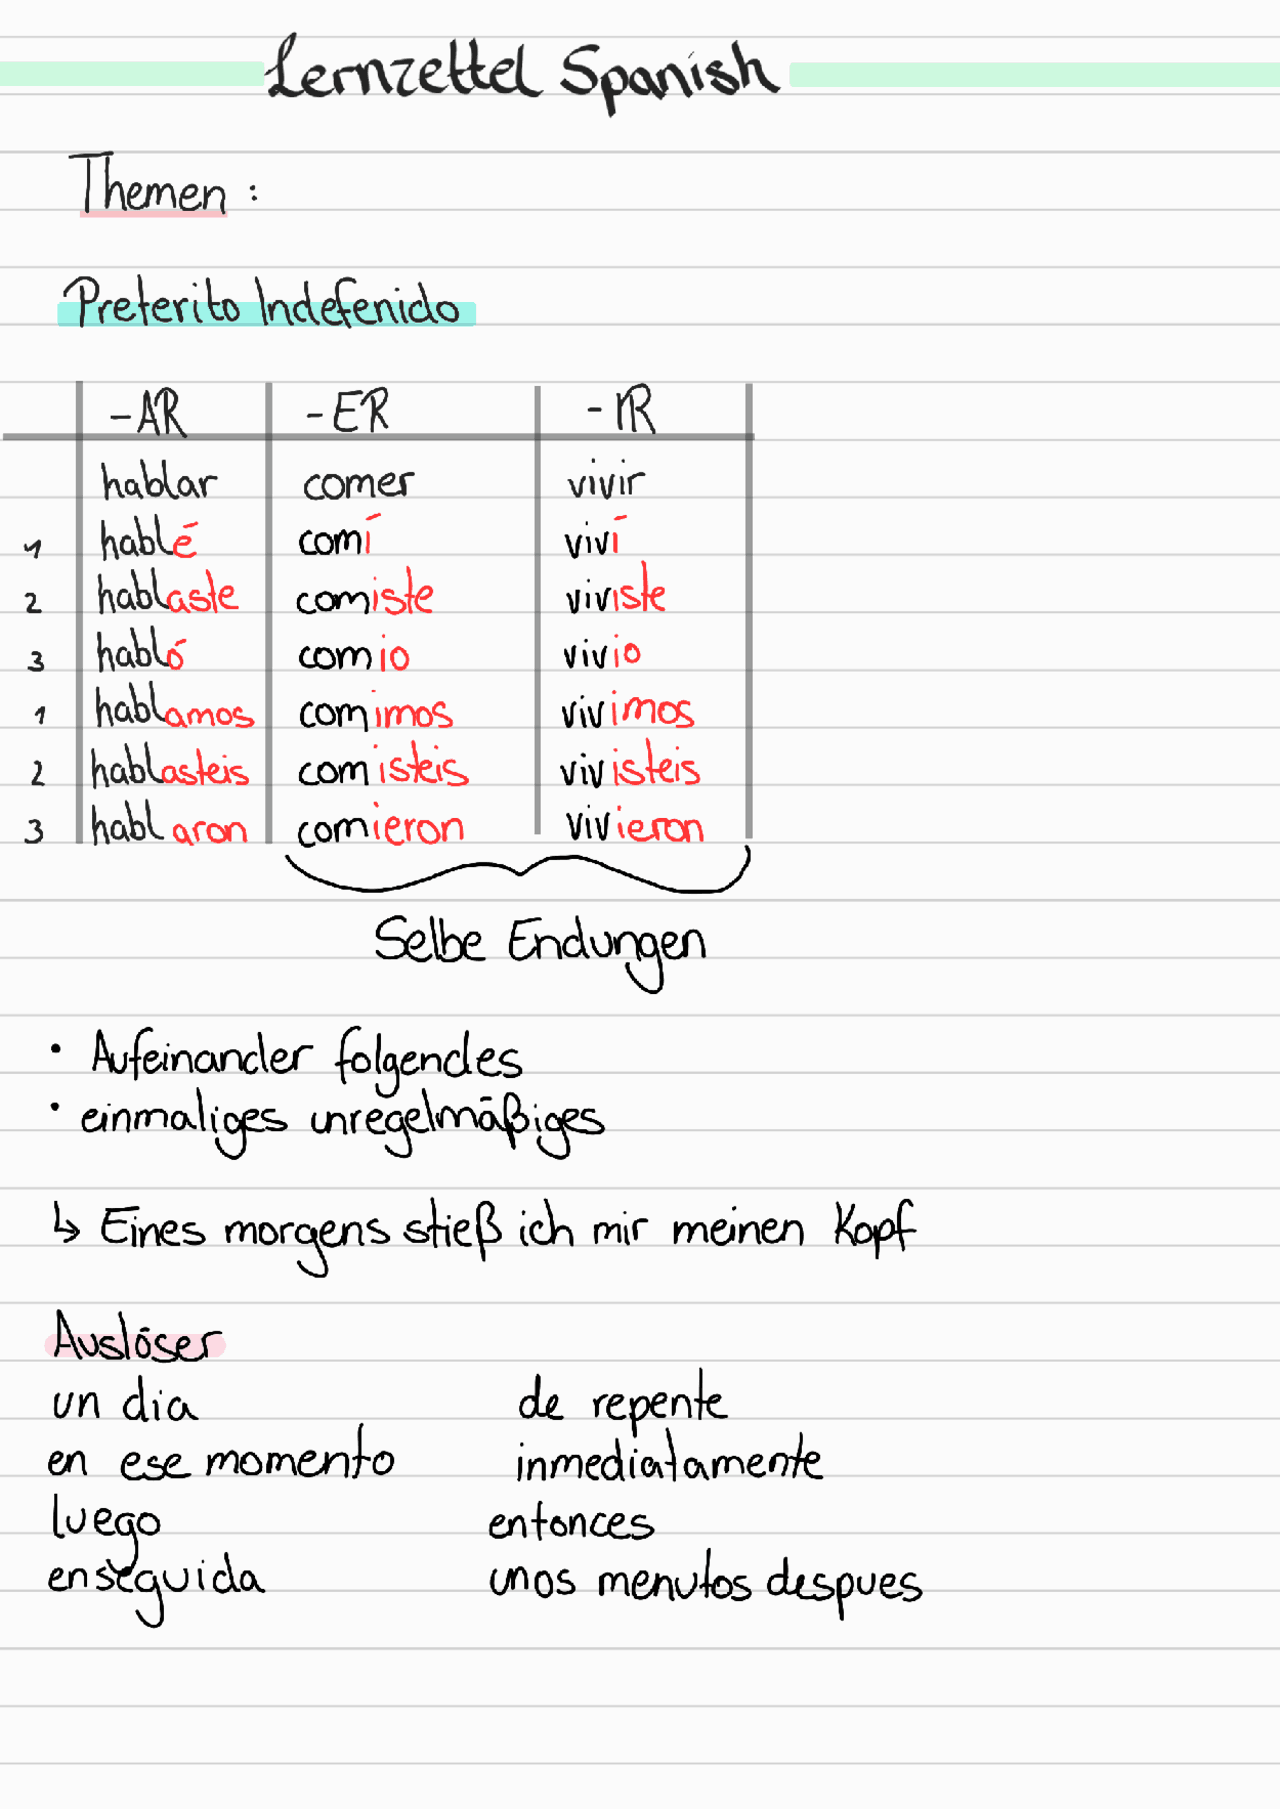 Lernzettel Spanish
Themen :
Preterito Indefenido
-AR -ER -IR
hablar comer vivir
1 hablé comí viví
2 hablaste comiste viviste
3 habló comio vivio
1 hablamos comimos vivimos
2 hablasteis comisteis vivisteis
3 hablaron comieron vivieron
Selbe Endungen
• Aufeinander folgendes
• einmaliges unregelmäßiges
↳ Eines morgens stieß ich mir meinen Kopf
Auslöser
un dia de repente
en ese momento inmediatamente
luego entonces
enseguida unos menutos despues